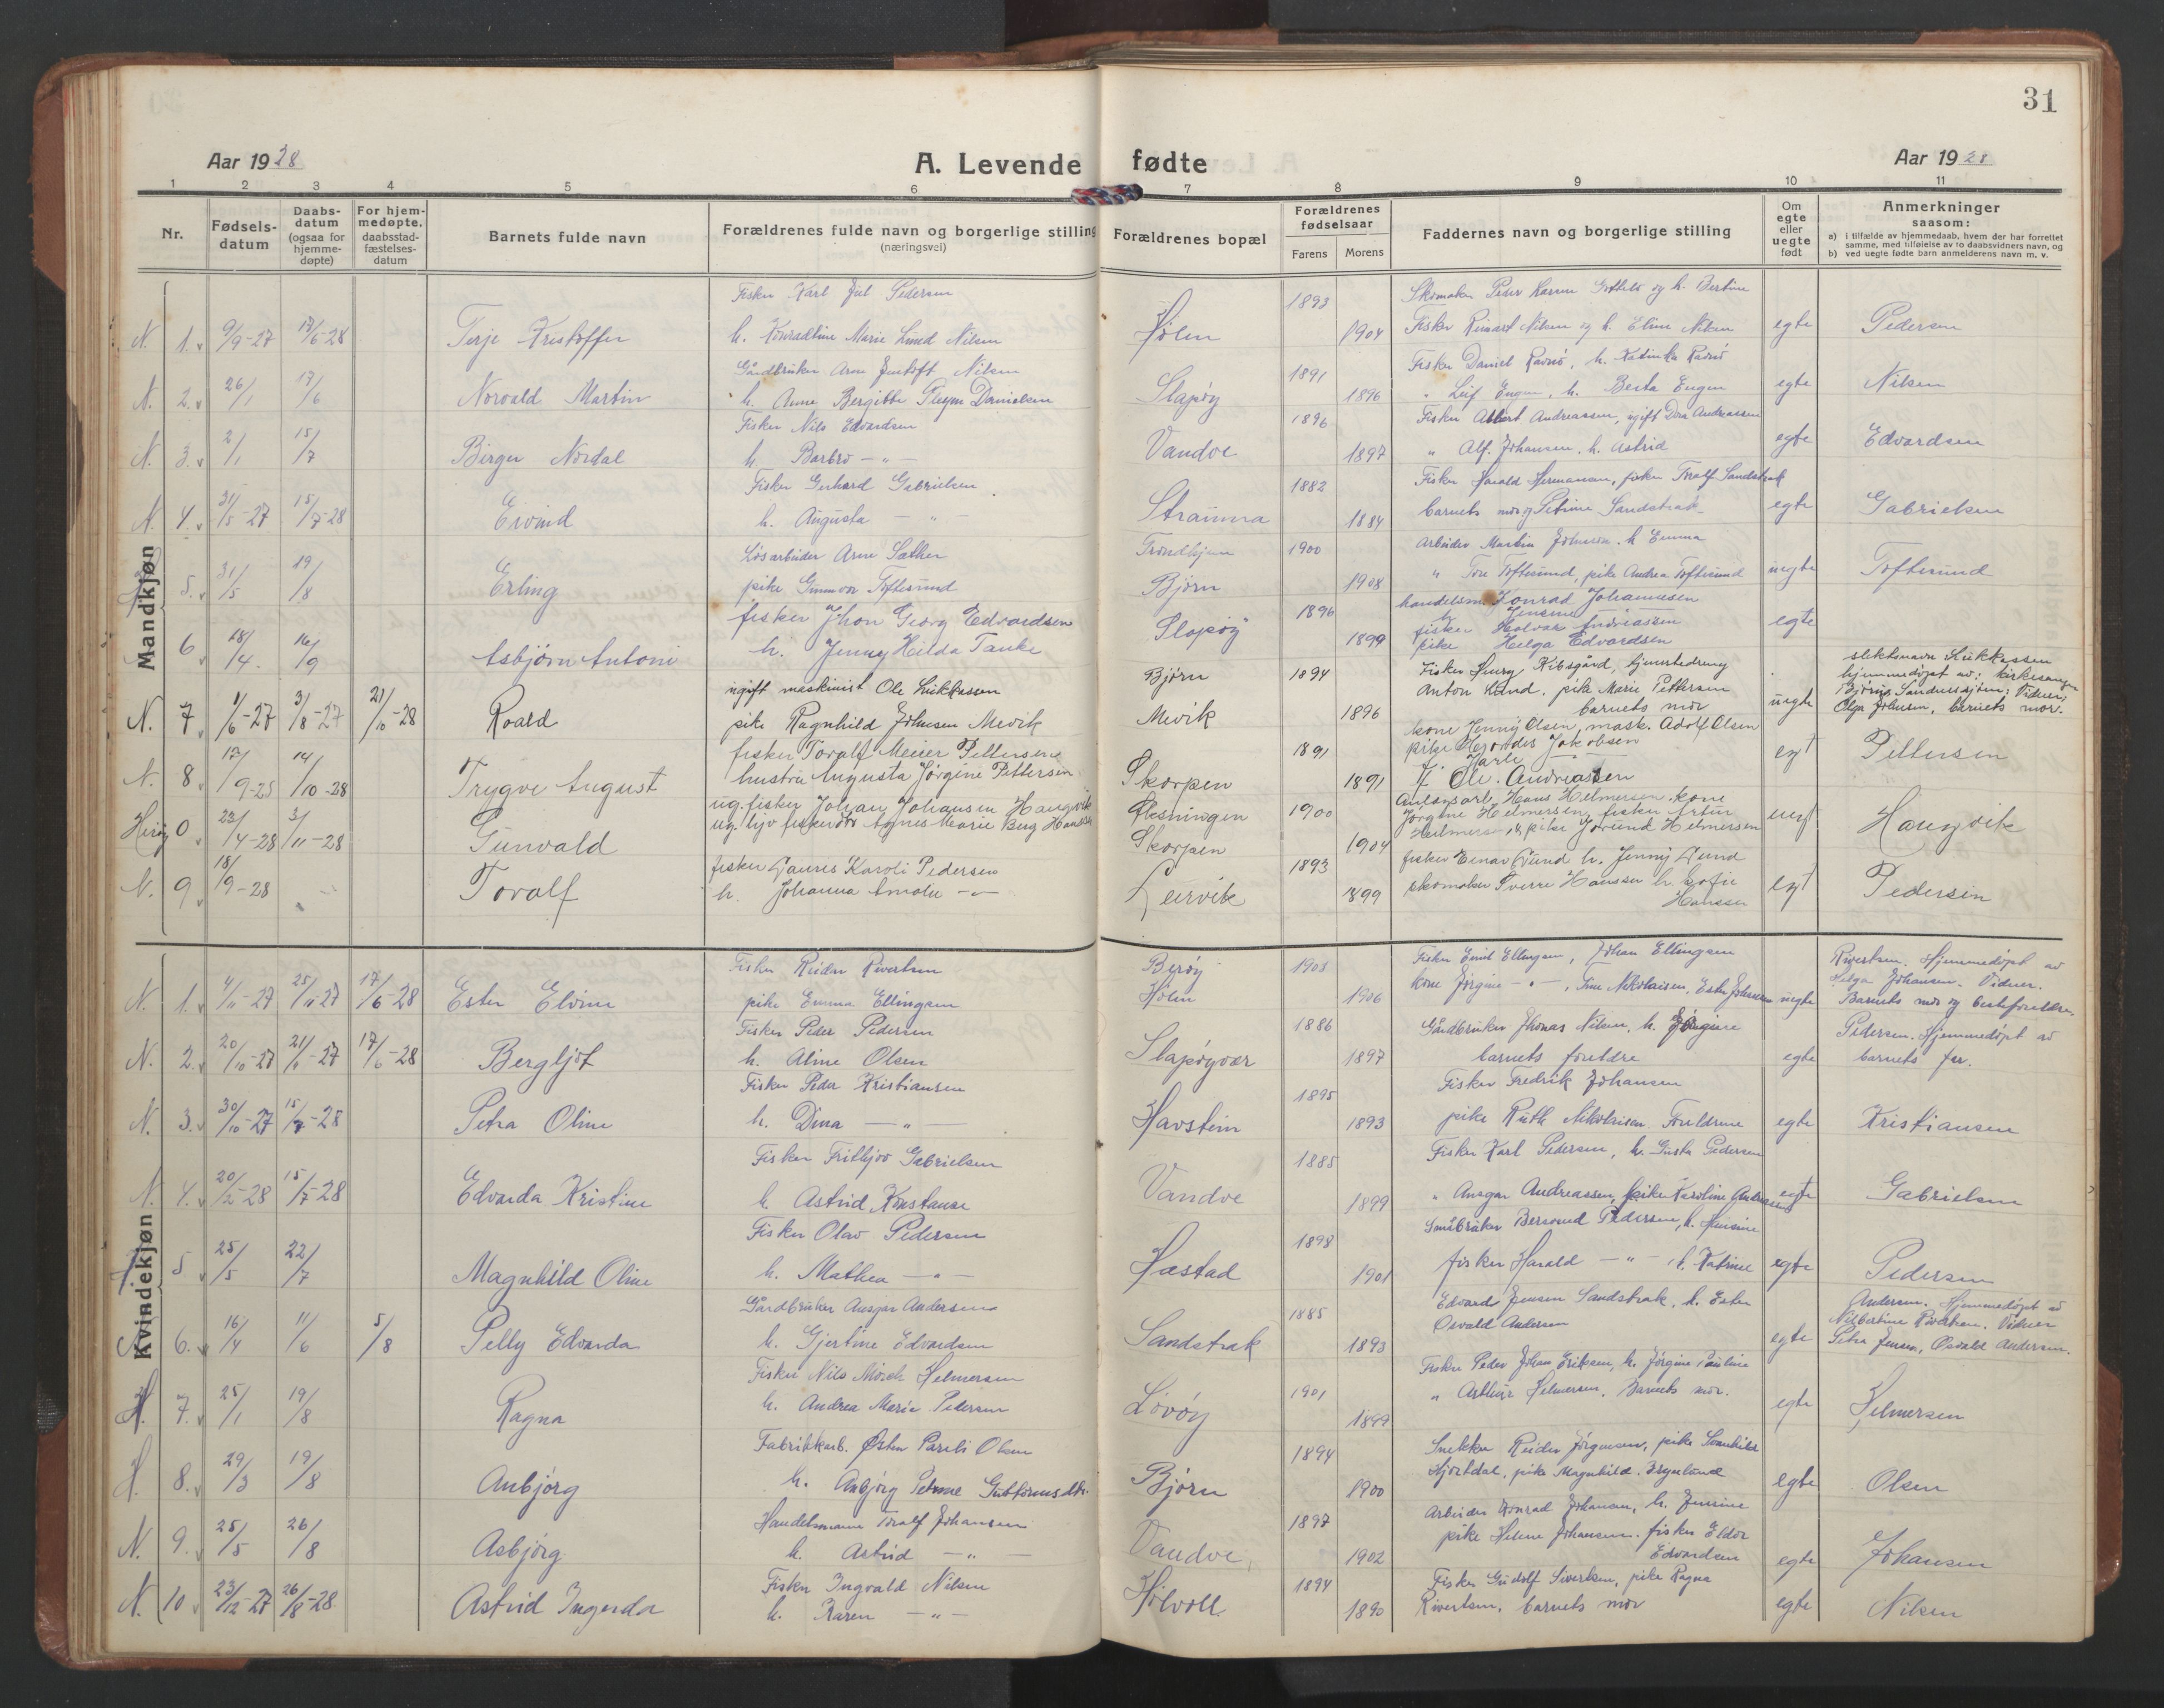 31
Aar 1928
A. Levende fødte
Aar 1928
1 2 3 4 5 6 7 8 9 10 11
Nr.
Fødsels-datum
Daabs-datum (ogsaa for hjemme-døpte)
For hjem-medøpte, daabsstad-fæstelses-datum
Barnets fulde navn
Forældrenes fulde navn og borgerlige stilling (næringsvei)
Forældrenes bopæl
Forældrenes fødselsaar
Farens Morens
Faddernes navn og borgerlige stilling
Om egte eller uegte født
Anmerkninger saasom:
a) i tilfælde av hjemmedaab, hvem der har forrettet samme, med tilføielse av to daabsvidners navn, og
b) ved uegte fødte barn anmelderens navn m. v.
Mandkjøn
Fisker Karl Juel Pedersen 1893
N. 1. 9/9-27 17/6-28 Terje Kristoffer h. Konradline Marie Lund Nilsen Hølen 1904 Fisker Reinart Nilsen og h. Eline Nilsen egte Pedersen
Gårdbruker Arne Jentoft Nilsen 1891 Fisker Daniel Radsø, h. Katinka Radsø
N. 2. 26/1 17/6 Norvald Martin h. Anne Bergitte Danielsen Slapøy 1896 " Leif Engen, h. Berta Engen egte Nilsen
Fisker Nils Edvardsen 1896 Fisker Albert Andreassen, ugift Dora Andreassen
N. 3. 2/1 15/7 Birger Nordal h. Barbro - " - Vandve 1897 " Alf. Johansen. h. Astrid egte Edvardsen
Fisker Gerhard Gabrielsen 1882 Fisker Harald Hermansen, fisker Tralf Sandstrak
N. 4. 31/5-27 15/7-28 Eivind h. Augusta - " Strauma 1884 barnets mor og Petrine Sandstrak egte Gabrielsen
Løsarbeider Arne Sather Trondhjem 1900 Arbeider Martin Johnsen. h. Emma
5. 31/5 19/8 Erling pike Gunnvor Toftesund Bjørn 1908 " Tore Toftesund, pike Andrea Toftesund uegte Toftesund
fisker Jhon Georg Edvardsen 1896 handelsm. Konrad Johannesen
h. Jensine
6 18/4. 16/9 Asbjørn Antoni h. Jenny Hilda Tanke Slapøy 1899 fisker Halvar Andreassen egte
pike Helga Edvardsen
ugift maskinist Ole Lukkassen Bjørn 1894 Fisker Henry Ribsgård, hjemstedning slektsnavn Lukkassen
N. 7 1/6-27 3/8-27 21/10-28 Roald pike Ragnhild Johnsen Mevik Mevik 1896 Anton Rand. pike Marie Pettersen barnets mor uegte hjemmedøpt av: kirkesanger Bjørn Sandnessjøen: Vidner: Olga Johnsen, barnets mor.
fisker Toralf Meier Pettersen 1891 kone Jenny Olsen, mask. Adolf Olsen
N. 8 17/9-25 14/10-28 Trygve August hustru Augusta Jørgine Pettersen Skorpen 1891 pike Hjordis Jakobsen f. Ole Andreassen egt Pettersen
ug. fisker Johan Johansen Haugvik Flesningen 1900 Anlegsarb. Hans Helmersen. kone Jørgine Helmersen, fisker Artur
Herøy 0 23/4-28 3/11-28 Gunvald ug. tjv fiskerdtr Agnes Marie Berg Hanssen Skorpen 1904 Helmersen, pike Jørund Helmersen uegt Haugvik
fisker Laures Karoli Pedersen 1893 fisker Einar Lund h. Jenny Lund
N. 9 18/9-28 Toralf h. Johanna Amalie - " - Leirvik 1899 skomaker Sverre Hanssen h. Sofie Hanssen egt Pedersen
Kvindekjøn
Fisker Reidar Rivertsen Berøy 1905 Fisker Emil Ellingsen, Johan Ellingsen Rivertsen. Hjemmedøpt av
N. 1. 4/11-27 25/11-27 17/6-28 Ester Elvine pike Emma Ellingsen Hølen 1906 kone Jørgine - " -, Tine Nikolaisen, Ester Johnsen uegte Helga Johansen. Vidner. Barnets mor og besteforeldre.
Fisker Peder Pedersen 1886 Gårdbruker Thomas Nilsen, h. Jørgine Pedersen. Hjemmedøpt av
N. 2. 20/10-27 21/11-27 17/6-28 Bergljot h. Aline Olsen Slapøyvær 1897 barnets foreldre egte barnets far.
Fisker Peder Kristiansen 1895 Fisker Fredrik Johansen
N. 3. 30/10-27 15/7-28 Petra Oline h. Dina - " - Havstein 1893 pike Ruth Nikolaisen. Foreldrene egte Kristiansen
Fisker Fritlijov Gabrielsen 1885 Fisker Karl Pedersen, h. Gusta Pedersen
N. 4. 20/2-28 15/7-28 Edvarda Kristine h. Astrid Konstanse Vandve 1899 " Ansgar Andreassen, pike Karoline Andreassen egte Gabrielsen
Fisker Olav Pedersen 1898 Småbruker Bersvend Pedersen, h. Hansine
5 25/5 22/7 Magnhild Oline h. Mathea - " - Hæstad 1901 fisker Harald - " -, h. Katrine egte Pedersen
Gårdbruker Ansgar Andersen 1885 Edvard Jensen Sandstrak, h. Ester Andersen. Hjemmedøpt av
6. 16/4 11/6 5/8 Pelly Edvarda h. Gjertine Edvardsen Sandstrak 1893 Osvald Andersen egte Nilbertine Rivertsen. Vidner Petra Jensen, Osvald Andersen.
Fisker Nils Mosch Helmersen 1901 Fisker Peder Johan Eriksen, h. Jørgine Pauline
H. 7. 25/1 19/8 Ragna h. Andrea Marie Pedersen Løvøy 1899 " Arthur Helmersen. Barnets mor. egte Helmersen
Fabrikkarb. Østen Pareli Olsen 1894 Snekker Reidar Jørgensen, pike Svanhild
H. 8. 29/3 19/8 Anbjørg h. Anbjørg Petrine Guttormsdtr. Bjørn 1900 Hjortdal, pike Magnhild Brynlund egte Olsen
Handelsmann Toralf Johansen 1897 Arbeider Konrad Johansen, h. Jensine
N. 9. 25/5 26/8 Asbjørg h. Astrid - " - Vandve 1902 pike Helene Johansen. fisker Eldor Edvardsen egte Johansen
Fisker Ingvald Nilsen 1894 Fisker Gudolf Sivertsen, pike Ragna
N. 10 23/12-27 26/8-28 Astrid Ingerda h. Karen - " - Hilvoll 1890 Rivertsen, barnets mor egte Nilsen